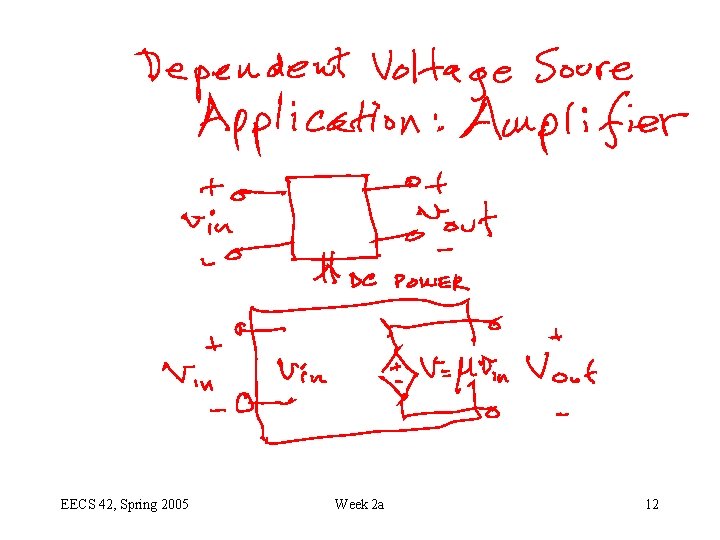 Dependent Voltage Soure
Application: Amplifier
+ +
vin vout
- -
DC POWER
+ + +
Vin Vin - V=μVin Vout
- -
EECS 42, Spring 2005 Week 2a 12